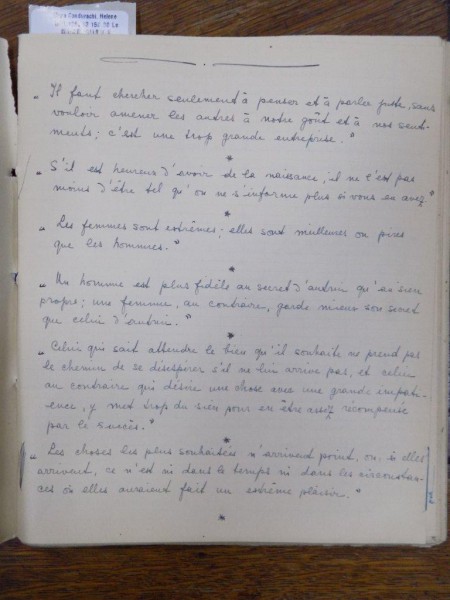 „Il faut chercher seulement à penser et à parler juste, sans
vouloir amener les autres à notre goût et à nos senti-
ments; c'est une trop grande entreprise."
*
„S'il est heureux d'avoir de la naissance, il ne l'est pas
moins d'être tel qu'on ne s'informe plus si vous en avez"
*
„Les femmes sont extrêmes; elles sont meilleures ou pires
que les hommes."
*
„Un homme est plus fidèle au secret d'autrui qu'au sien
propre; une femme, au contraire, garde mieux son secret
que celui d'autrui."
*
„Celui qui sait attendre le bien qu'il souhaite ne prend pas
le chemin de se désespérer s'il ne lui arrive pas, et celui
au contraire qui désire une chose avec une grande impati-
ence, y met trop du sien pour en être assez récompensé
par le succès."
*
„Les choses les plus souhaitées n'arrivent point, ou, si elles
arrivent, ce n'est ni dans le temps ni dans les circonstan-
ces où elles auraient fait un extrême plaisir."
*